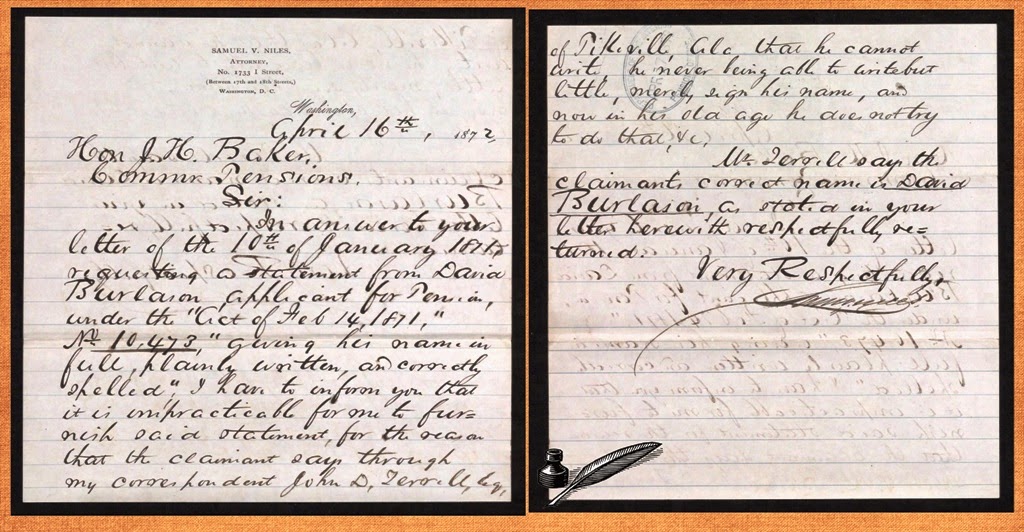 SAMUEL V. NILES,
ATTORNEY,
No. 1733 I Street,
(Between 17th and 18th Streets,)
WASHINGTON, D. C.
Washington,
April 16th, 1872
Hon J. H. Baker,
Commr Pensions.
Sir:
In answer to your
letter of the 10th of January 1872,
requesting a statement from David
Burlason, applicant for Pension,
under the "Act of Feb 14, 1871,"
No 10,473, "giving his name in
full, plainly written, and correctly
spelled", I have to inform you that
it is impracticable for me to fur=
nish said statement, for the reason
that the claimant says through
my correspondent John D, Terrell, Esq,
of Pikeville Ala that he cannot
write, he never being able to write but
little, merely sign his name, and
now in his old age he does not try
to do that, &c,
Mr Terrell says the
claimants correct name is David
Burlason, as stated in your
letter herewith respectfully re=
turned.
Very Respectfully,